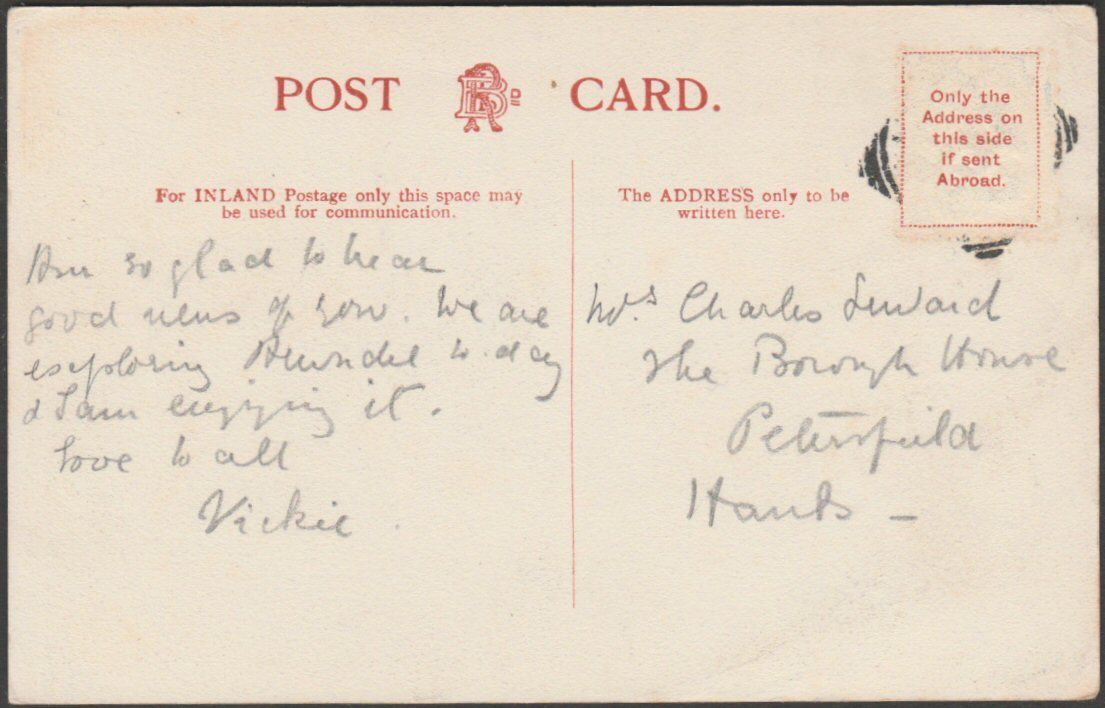 POST CARD.
Only the
Address on
this side
if sent
Abroad.
For INLAND Postage only this space may
be used for communication.
The ADDRESS only to be
written here.
Am so glad to hear
good news of you. We are
exploring Arundel to-day
& I am enjoying it.
Love to all
Vickie.
Mrs. Charles Seward
The Borough House
Petersfield
Hants -